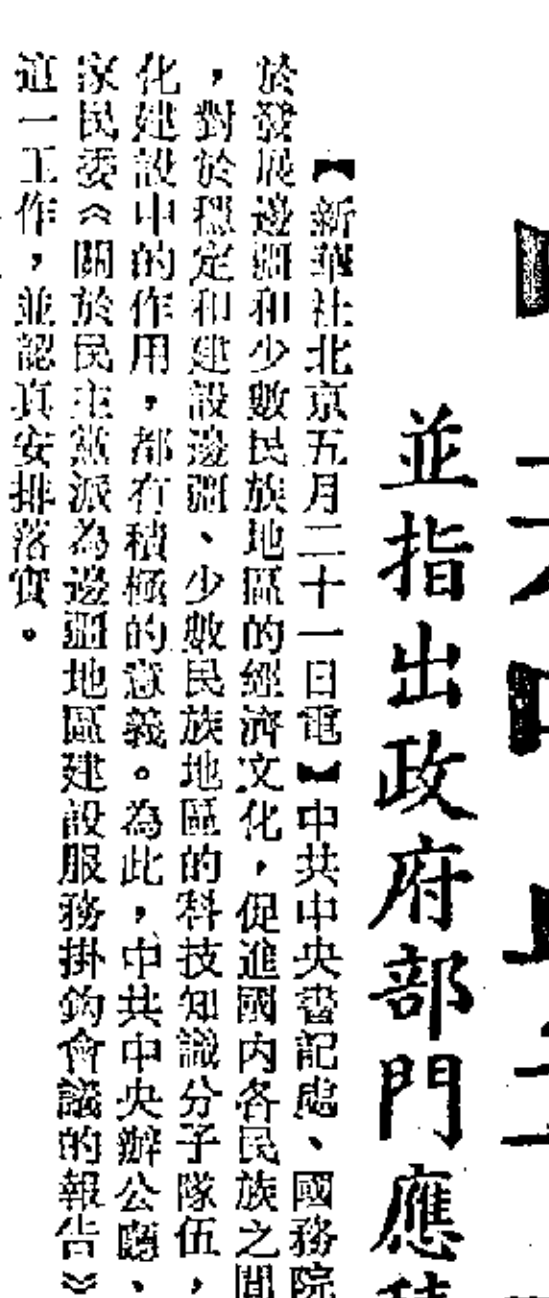 並指出政府部門應積
【新華社北京五月二十一日電】中共中央書記處、國務院
於發展邊疆和少數民族地區的經濟文化，促進國內各民族之間
，對於穩定和建設邊疆、少數民族地區的科技知識分子隊伍，
化建設中的作用，都有積極的意義。為此，中共中央辦公廳、
家民委《關於民主黨派為邊疆地區建設服務掛鈎會議的報告》
這一工作，並認真安排落實。